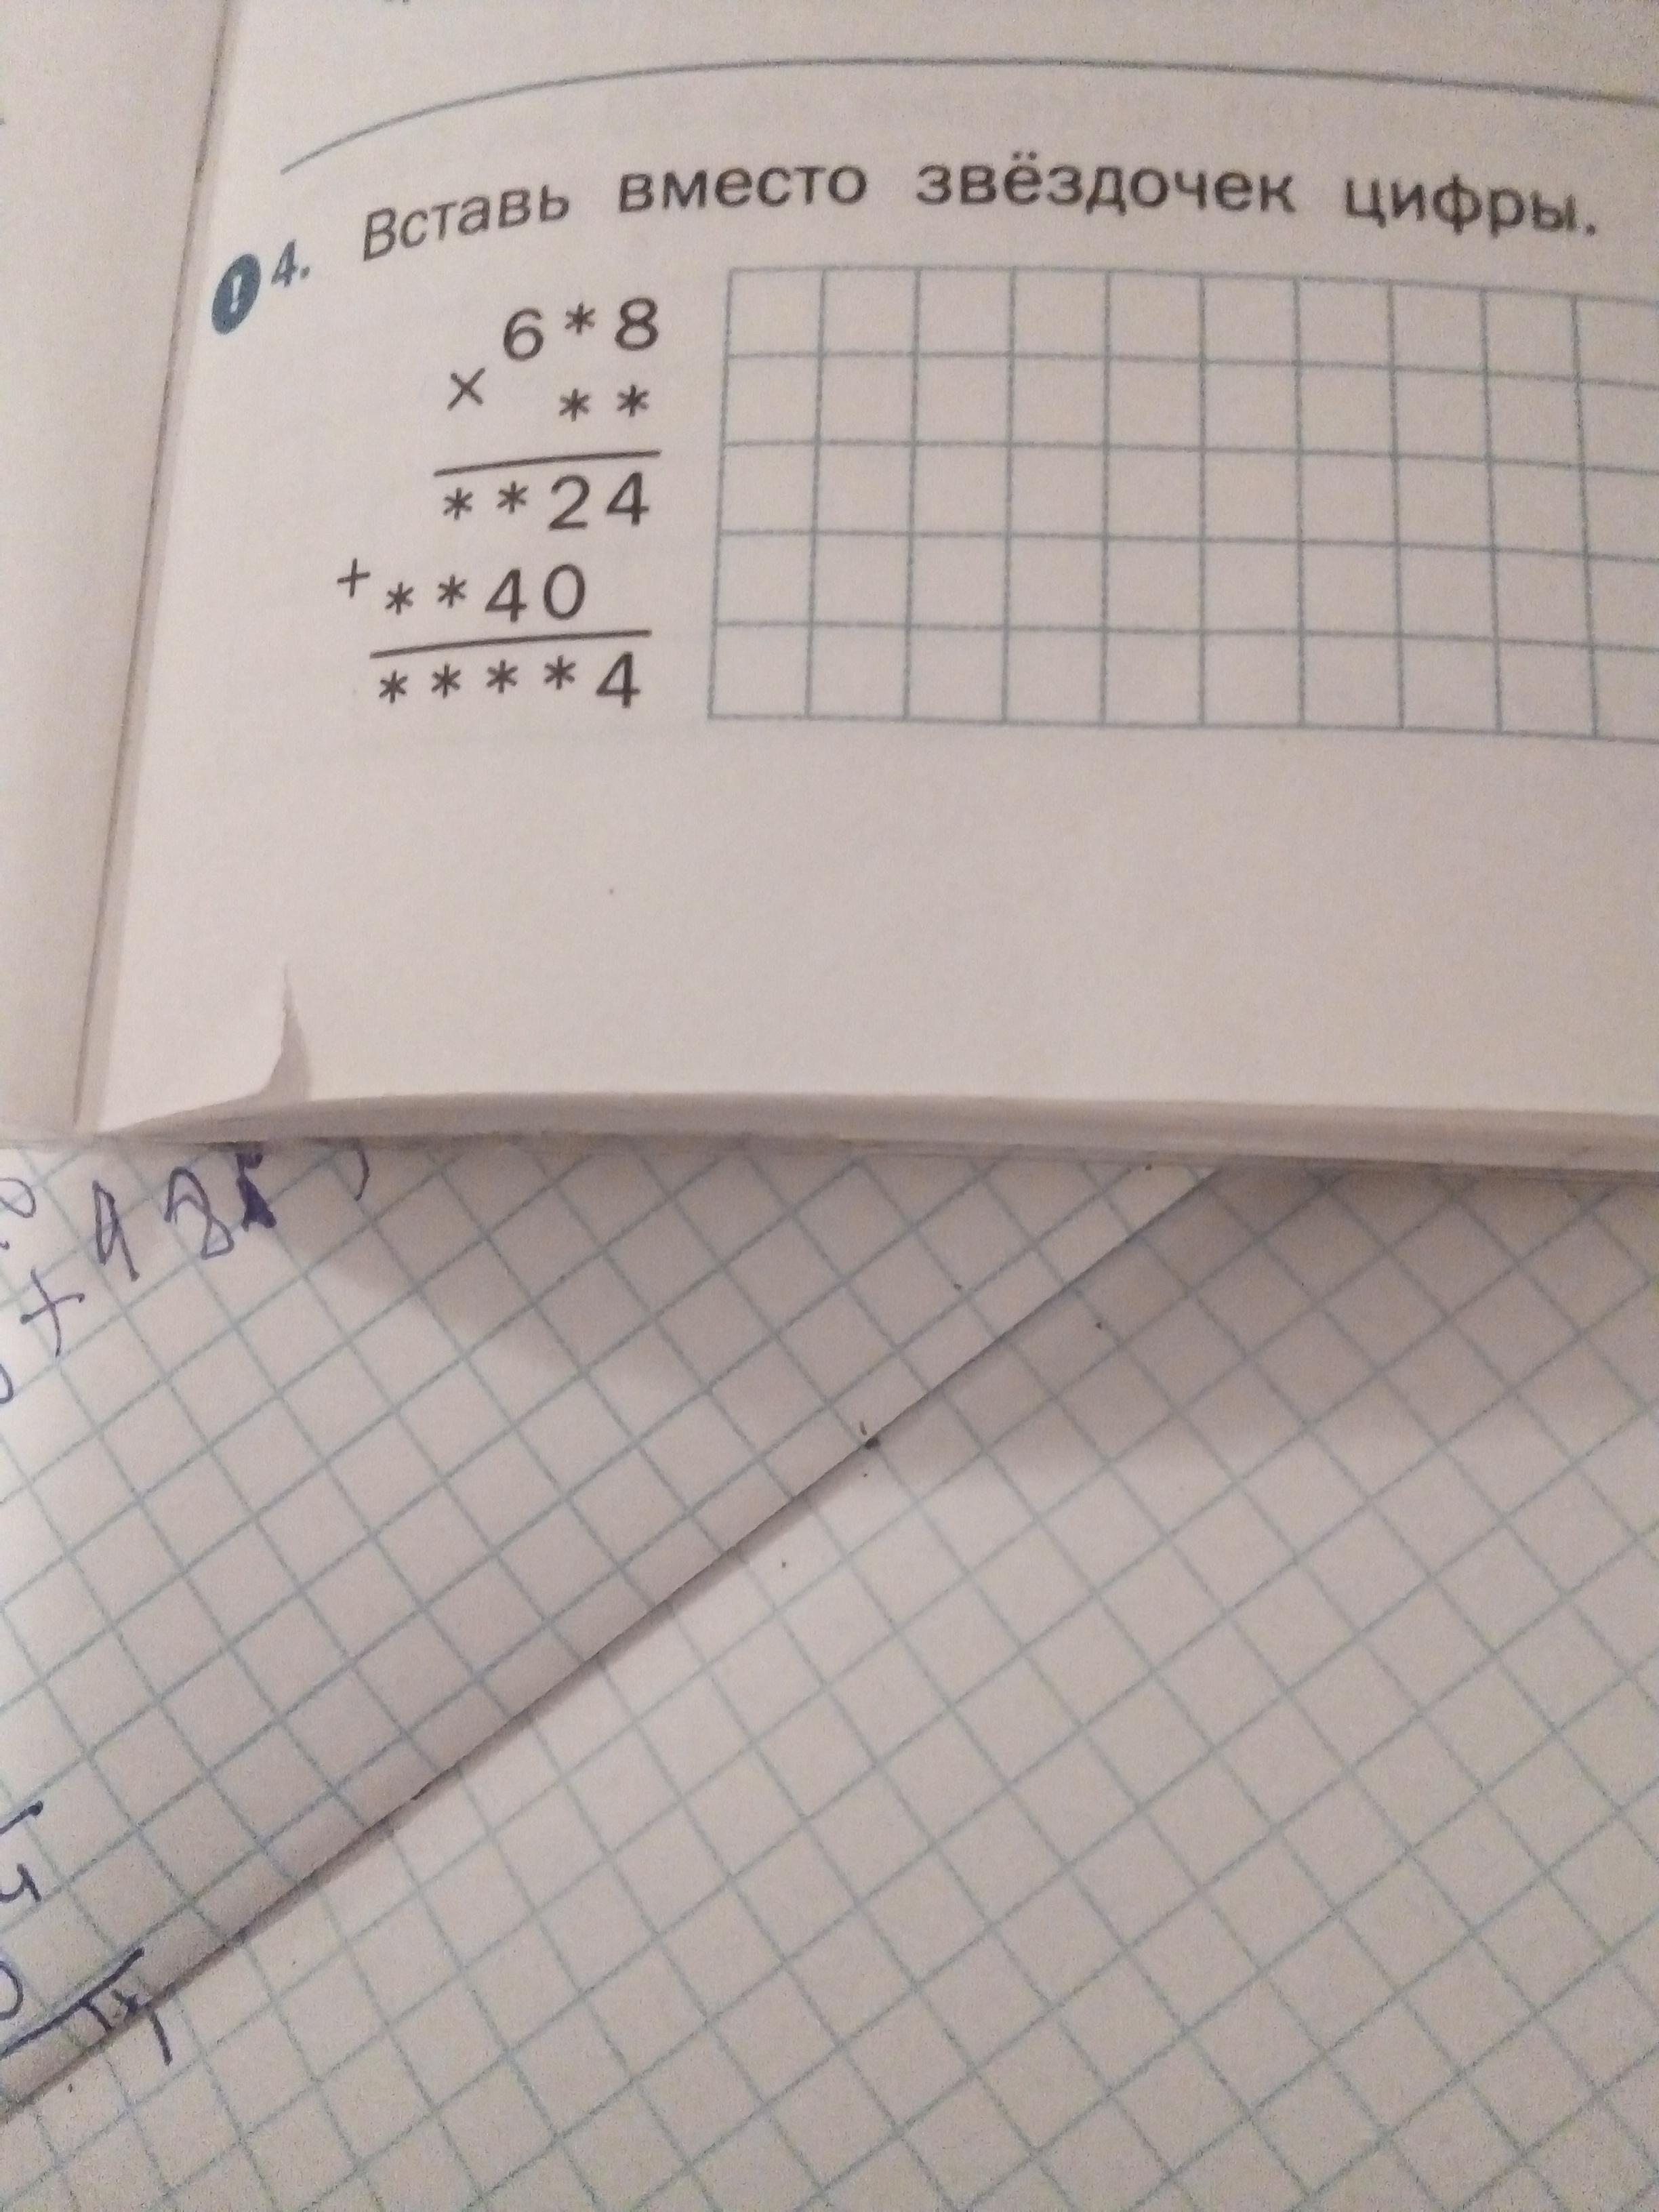 ! 4. Вставь вместо звёздочек цифры.
6*8
× **
**24
+ **40
****4
+